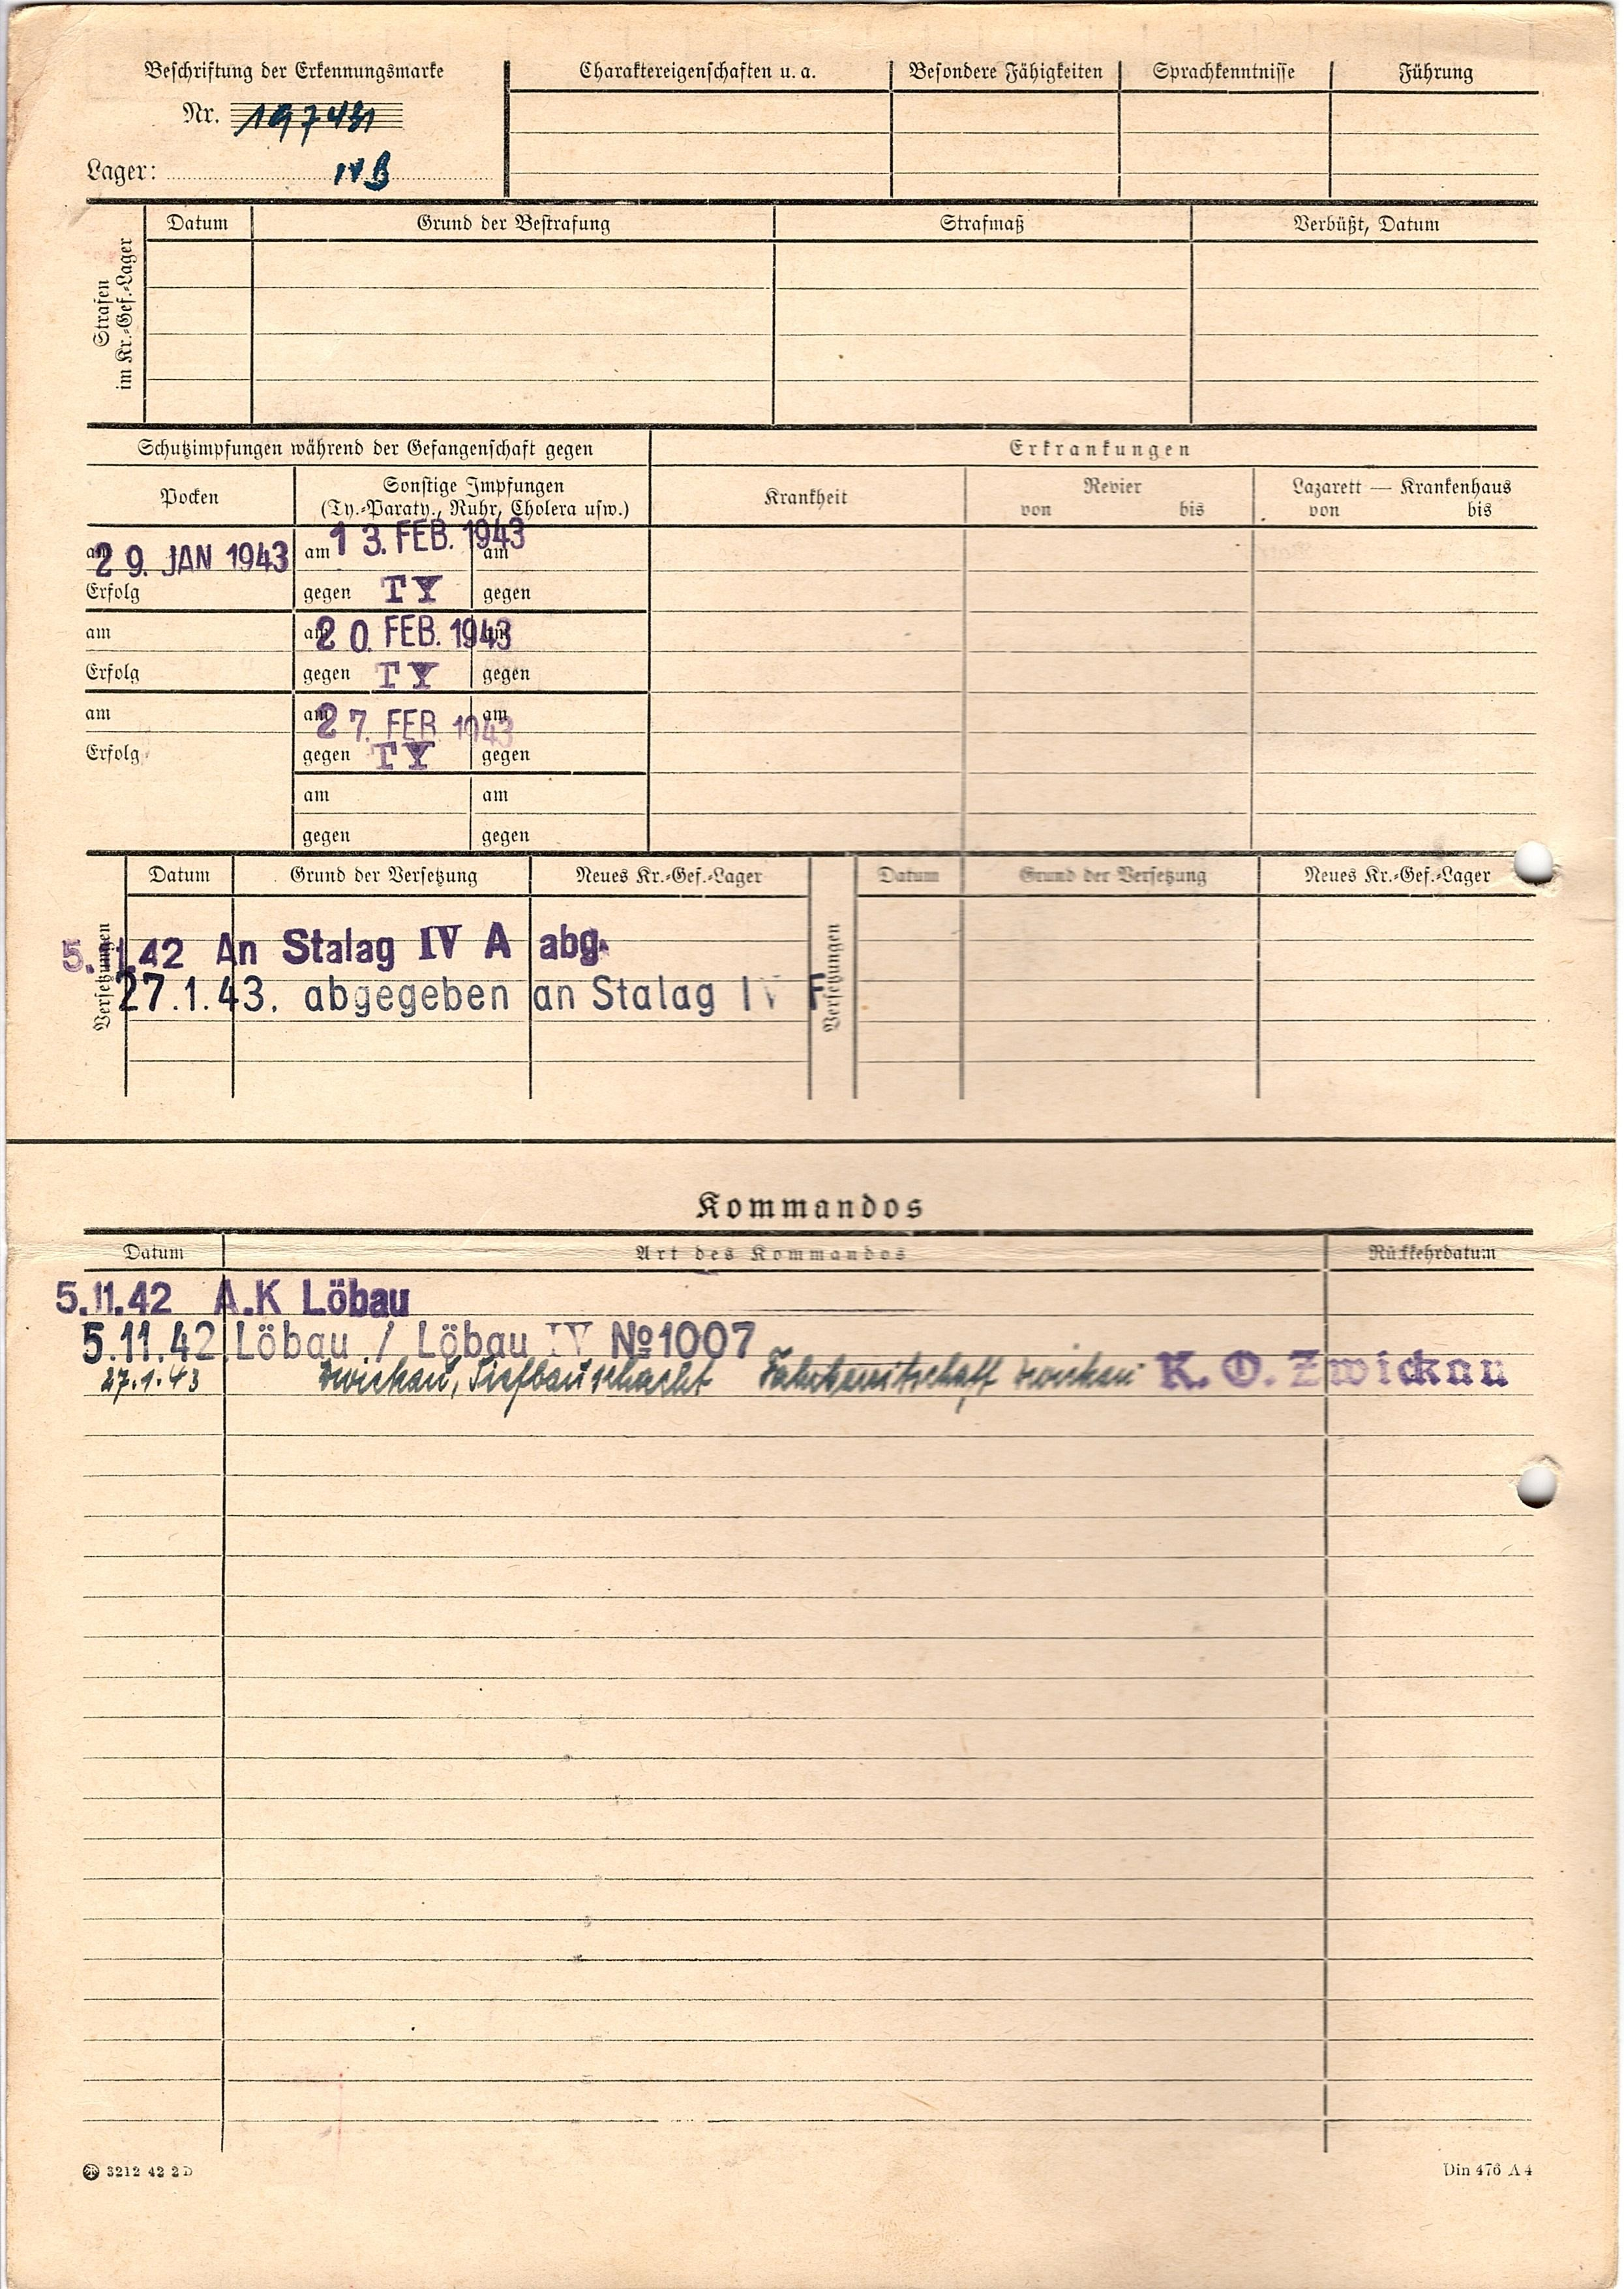 Beschriftung der Erkennungsmarke
Nr. 197431
Lager: IV B
Charaktereigenschaften u. a. Besondere Fähigkeiten Sprachkenntnisse Führung
Strafen
im Kr.-Gef.-Lager
Datum Grund der Bestrafung Strafmaß Verbüßt, Datum
Schutzimpfungen während der Gefangenschaft gegen
Pocken
Sonstige Impfungen
(Ty.-Paraty., Ruhr, Cholera usw.)
Erkrankungen
Krankheit
Revier
von bis
Lazarett — Krankenhaus
von bis
am 29. JAN 1943 am 13. FEB. 1943 am
Erfolg gegen TY gegen
am am 20. FEB. 1943 am
Erfolg gegen TY gegen
am am 27. FEB 1943 am
Erfolg gegen TY gegen
am am
gegen gegen
Versetzungen
Datum Grund der Versetzung Neues Kr.-Gef.-Lager
5.11.42 An Stalag IV A abg.
27.1.43. abgegeben an Stalag IV F
Versetzungen
Datum Grund der Versetzung Neues Kr.-Gef.-Lager
Kommandos
Datum Art des Kommandos Rückkehrdatum
5.11.42 A.K Löbau
5.11.42 Löbau / Löbau IV № 1007
27.1.43 Zwickau, Tiefbauschacht Zwickau K. O. Zwickau
3212 42 2 D
Din 476 A 4